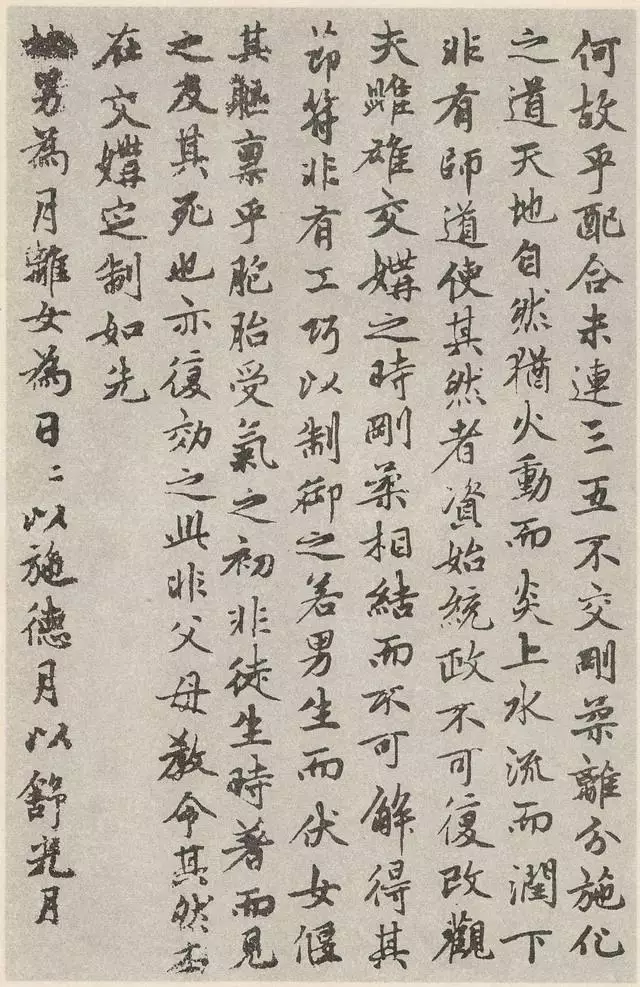 何故乎配合未連三五不交剛柔離分施化
之道天地自然猶火動而炎上水流而潤下
非有師道使其然者資始統政不可復改觀
夫雌雄交媾之時剛柔相結而不可解得其
節符非有工巧以制御之若男生而伏女偃
其軀稟乎胞胎受氣之初非徒生時著而見
之及其死也亦復効之此非父母教令其然本
在交媾定制如先
男為月離女為日二以施德月以舒光月